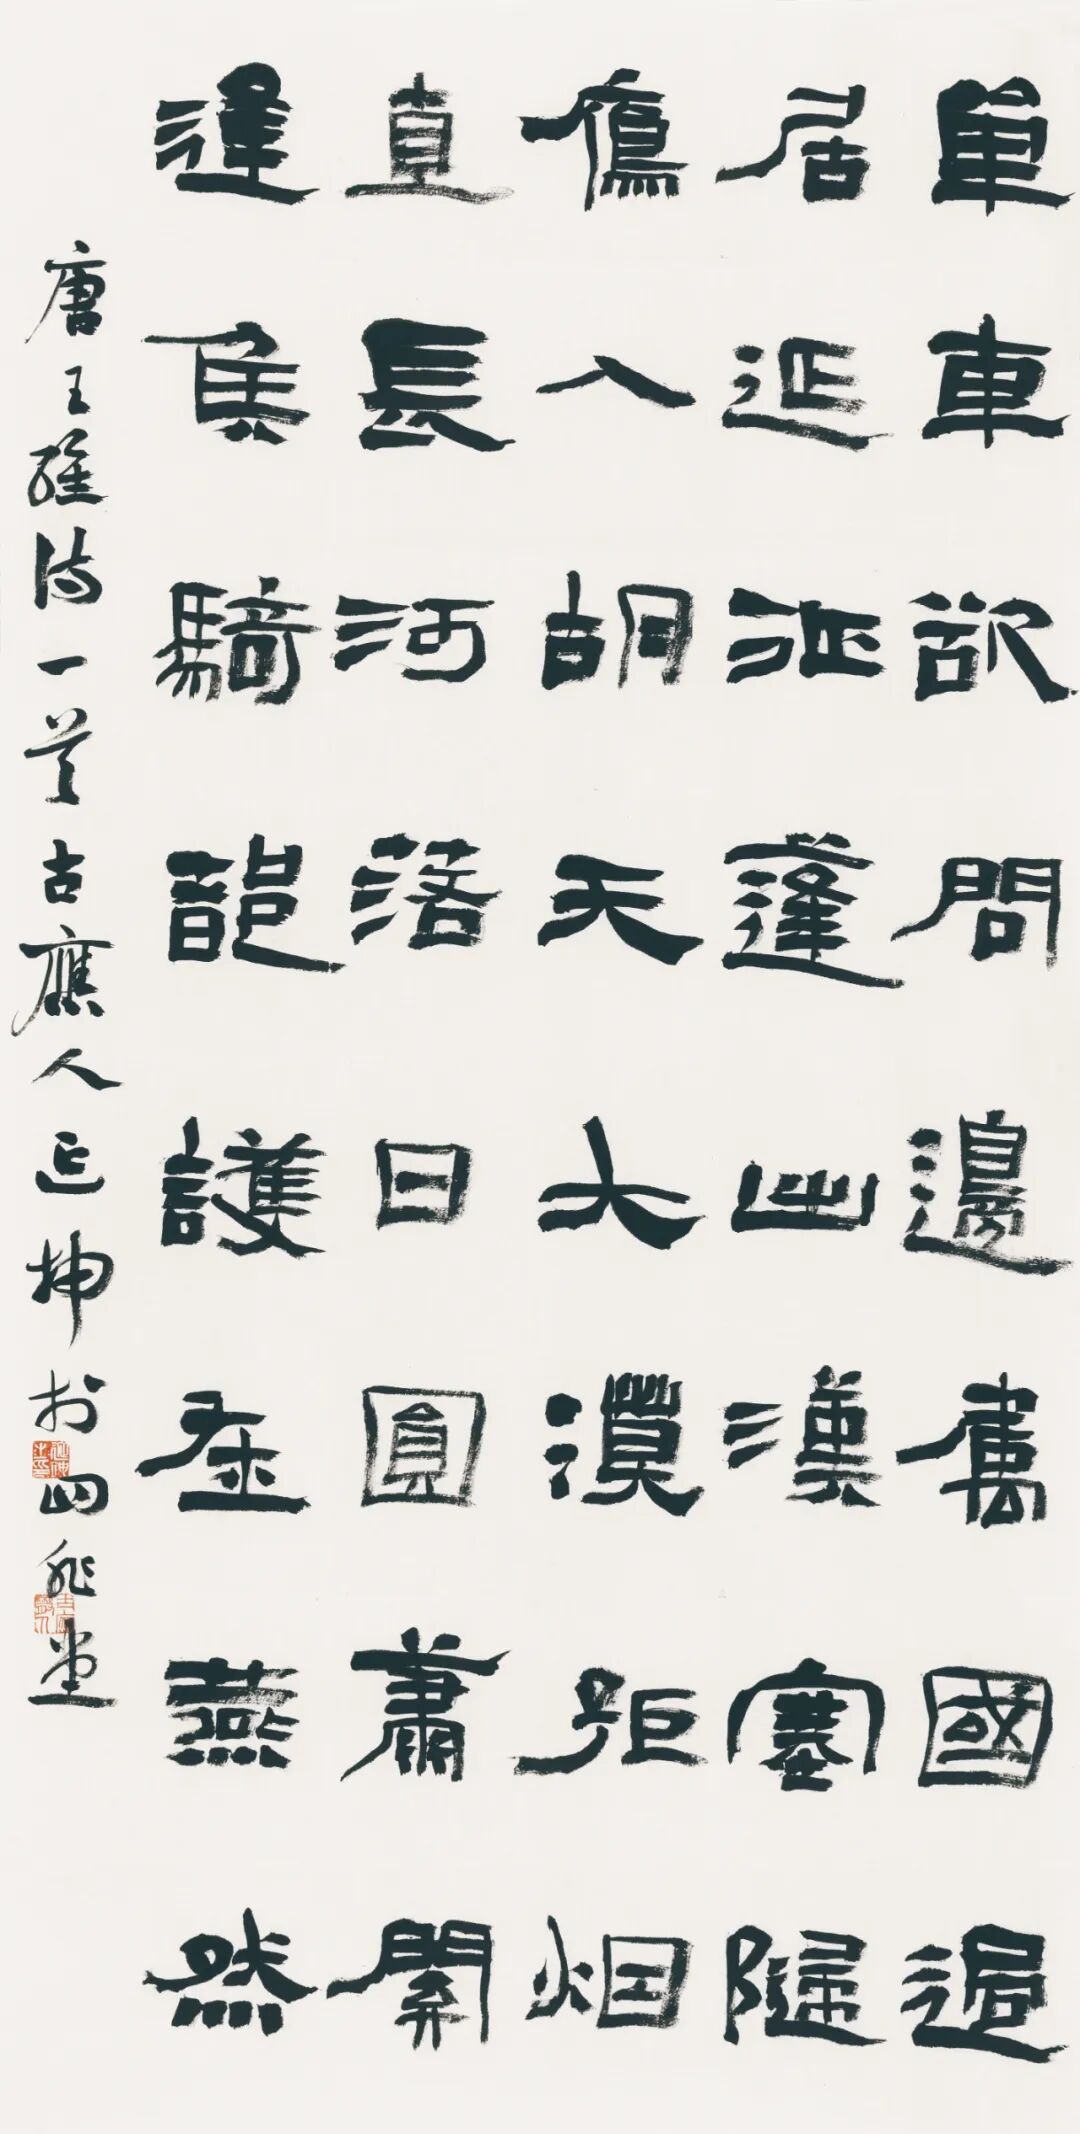 單車欲問邊屬國過
居延征蓬出漢塞歸
鴈入胡天大漠孤烟
直長河落日圓蕭關
逢侯騎都護在燕然
唐王維詩一首古應人延坤於四堂